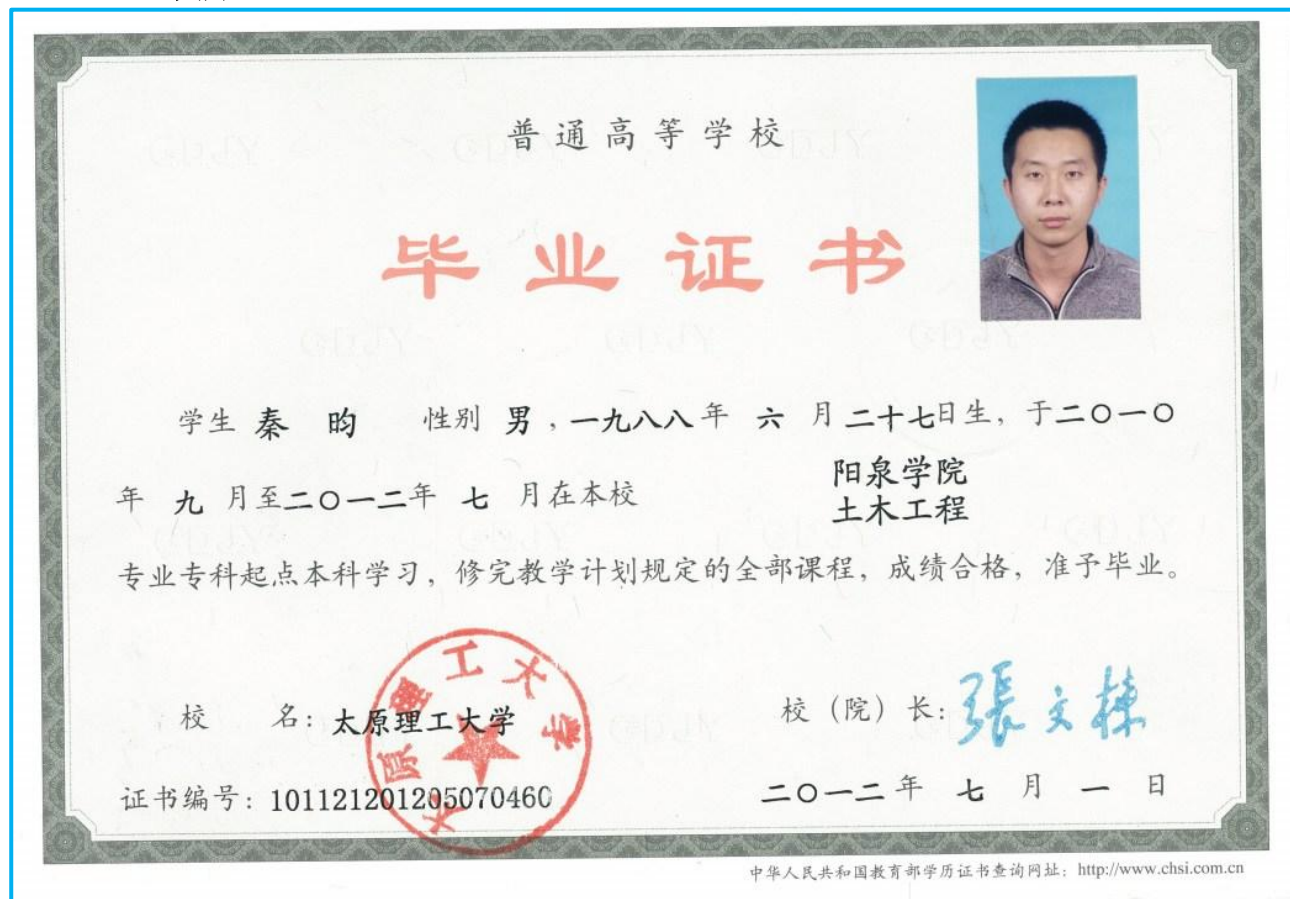 普通高等学校
毕业证书
学生 秦 昀 性别 男，一九八八年 六 月 二十七日生，于二〇一〇
年 九 月至二〇一二年 七 月在本校 阳泉学院
土木工程
专业专科起点本科学习，修完教学计划规定的全部课程，成绩合格，准予毕业。
太原理工大学
校 名：太原理工大学 校（院）长：張文棟
证书编号：101121201205070460 二〇一二年 七 月 一 日
中华人民共和国教育部学历证书查询网址：http://www.chsi.com.cn